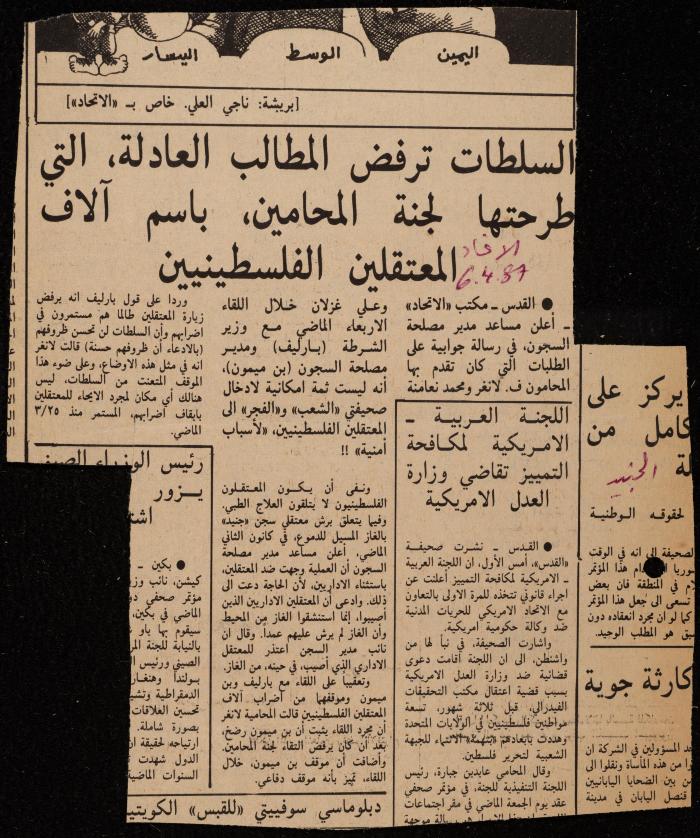 اليمين
الوسط
اليسار
[بريشة: ناجي العلي. خاص بـ «الاتحاد»]
السلطات ترفض المطالب العادلة، التي
طرحتها لجنة المحامين، باسم آلاف
المعتقلين الفلسطينيين
الاتحاد
6.4.87
● القدس ـ مكتب «الاتحاد»
ـ أعلن مساعد مدير مصلحة
السجون، في رسالة جوابية على
الطلبات التي كان تقدم بها
المحامون ف. لانغر ومحمد نعامنة
وعلي غزلان خلال اللقاء
الاربعاء الماضي مع وزير
الشرطة (بارليف) ومدير
مصلحة السجون (بن ميمون)،
أنه ليست ثمة امكانية لادخال
صحيفتي «الشعب» و«الفجر» الى
المعتقلين الفلسطينيين، «لأسباب
أمنية» !!
ونفى أن يكون المعتقلون
الفلسطينيون لا يتلقون العلاج الطبي.
وفيما يتعلق برش معتقلي سجن «جنيد»
بالغاز المسيل للدموع، في كانون الثاني
الماضي، أعلن مساعد مدير مصلحة
السجون أن العملية وجهت ضد المعتقلين،
باستثناء الاداريين، لأن الحاجة دعت الى
ذلك. وادعى أن المعتقلين الاداريين الذين
أصيبوا، إنما استنشقوا الغاز من المحيط
وأن الغاز لم يرش عليهم عمدا. وقال ان
نائب مدير السجن اعتذر للمعتقل
الاداري الذي أصيب، في حينه، من الغاز.
وتعقيبا على اللقاء مع بارليف وبن
ميمون وموقفهما من اضراب آلاف
المعتقلين الفلسطينيين قالت المحامية لانغر
أن مجرد اللقاء يثبت أن بن ميمون رضخ،
بعد أن كان يرفض التقاء لجنة المحامين.
وأضافت أن موقف بن ميمون، خلال
اللقاء، تميز بأنه موقف دفاعي.
وردا على قول بارليف انه يرفض
زيارة المعتقلين طالما هم مستمرون في
اضرابهم وأن السلطات لن تحسن ظروفهم
(بالادعاء أن ظروفهم حسنة) قالت لانغر
انه في مثل هذه الاوضاع، وعلى ضوء هذا
الموقف المتعنت من السلطات، ليس
هنالك أي مكان لمجرد الايحاء للمعتقلين
بايقاف اضرابهم، المستمر منذ ٣/٢٥
الماضي.
اللجنة العربية ـ
الامريكية لمكافحة
التمييز تقاضي وزارة
العدل الامريكية
● القدس ـ نشرت صحيفة
«القدس»، أمس الأول، ان اللجنة العربية
ـ الامريكية لمكافحة التمييز أعلنت عن
اجراء قانوني تتخذه للمرة الاولى بالتعاون
مع الاتحاد الامريكي للحريات المدنية
ضد وكالة حكومية أمريكية.
واشارت الصحيفة، في نبأ لها من
واشنطن، الى ان اللجنة أقامت دعوى
قضائية ضد وزارة العدل الامريكية
بسبب قضية اعتقال مكتب التحقيقات
الفيدرالي، قبل ثلاثة شهور، تسعة
مواطنين فلسطينيين في الولايات المتحدة
وهددت بابعادهم «بتهمة» الانتماء للجبهة
الشعبية لتحرير فلسطين.
وقال المحامي عابدين جبارة، رئيس
اللجنة التنفيذية للجنة، في مؤتمر صحفي
عقد يوم الجمعة الماضي في مقر اجتماعات
رئيس الوزراء
يزور
● بكين ـ
كيشن، نائب وز
مؤتمر صحفي
الماضي في بكين،
سيقوم بها
بالنيابة للجنة
الصيني ورئيس
بولندا وهنغار
الدمقراطية وتشي
تحسين العلاقات
بصورة شاملة.
ارتياحه لحقيقة
الدول شهدت
السنوات الماضية
دبلوماسي سوفييتي «للقبس» الكويتي
يركز على
كامل من
الجنيد
لحقوقه الوطنية
الصحيفة الى انه في الوقت
هذا المؤتمر
في المنطقة فان بعض
تسعى الى جعل هذا المؤتمر
كما لو ان مجرد انعقاده دون
هو المطلب الوحيد.
كارثة جوية
المسؤولين في الشركة ان
من هذه المأساة ونقلوا الى
بين الضحايا اليابانيين
قنصل اليابان في مدينة